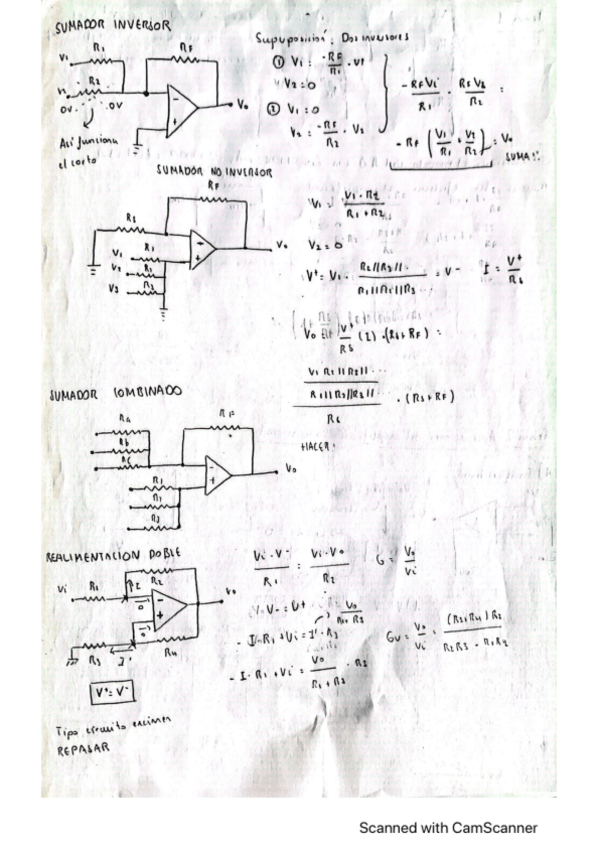 SUMADOR INVERSOR
R1
RF
V1
R2
V2
0V
0V
V0
Así funciona
el corto
Supuposición: Dos inversores
① V1 : -RF/R1 · V1
V2 = 0
② V1 = 0
V2 = -RF/R2 · V2
-RF V1/R1 - RF V2/R2 =
- RF (V1/R1 + V2/R2) = V0
SUMA!!
SUMADOR NO INVERSOR
RF
Rs
V0
V1
R1
V2
R2
V3
R3
V1 = V1 · R2/R1 + R2
V2 = 0
V+ = V1 · R2//R3//.../R1//R2//R3 = V-
I = V+/Rs
V0 = V+/Rs (I) · (Rs + RF) =
· (Rs + RF)
SUMADOR COMBINADO
Ra
RF
Rb
Rc
V0
R1
R3
HACER:
REALIMENTACION DOBLE
Vi
R1
R2
I
V0
R3
I'
R4
V+ = V-
Vi - V-/R1 = Vi - V0/R2
G = V0/Vi
V- = V+
- I · R1 + Vi = I' · R3
- I · R1 + Vi = V0/R1 + R2 · R3
Gv = V0/Vi = (R3+R4) R2/R2R3 - R1R4
Tipo circuito examen
REPASAR
Scanned with CamScanner